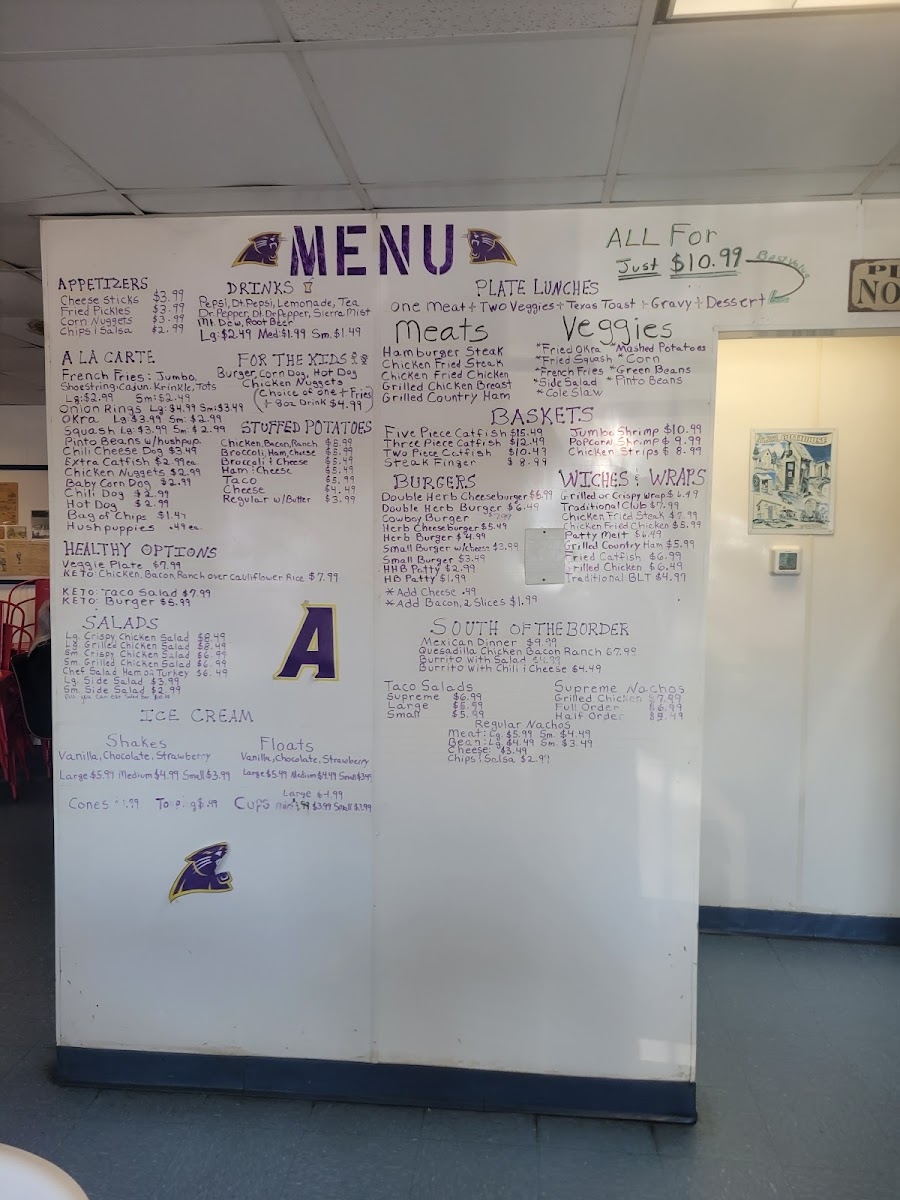 MENU
ALL FOR
Just $10.99
Best Value
APPETIZERS
Cheese Sticks $3.99
Fried Pickles $3.99
Corn Nuggets $3.99
Chips & Salsa $2.99
DRINKS
Pepsi, Dt. Pepsi, Lemonade, Tea
Dr. Pepper, Dt. Dr. Pepper, Sierra Mist
Mt. Dew, Root Beer
Lg: $2.49 Med: $1.99 Sm. $1.49
A LA CARTE
French Fries: Jumbo,
Shoestring, Cajun, Krinkle, Tots
Lg: $2.99 Sm: $2.49
Onion Rings Lg: $4.99 Sm: $3.49
OKra Lg $3.99 Sm: $2.99
Squash Lg: $3.99 Sm: $2.99
Pinto Beans w/hushpup.
Chili Cheese Dog $3.49
Extra Catfish $2.99ea
Chicken Nuggets $2.99
Baby Corn Dog $2.99
Chili Dog $2.99
Hot Dog $2.99
Bag of Chips $1.49
Hushpuppies .49 ea.
FOR THE KIDS
Burger, Corn Dog, Hot Dog
Chicken Nuggets
(Choice of one + Fries
+ 8oz Drink $4.99)
STUFFED POTATOES
Chicken, Bacon, Ranch $6.99
Broccoli, Ham, Cheese $5.99
Broccoli & Cheese $5.49
Ham & Cheese $5.49
Taco $5.99
Cheese $4.49
Regular w/Butter $3.99
HEALTHY OPTIONS
Veggie Plate $7.99
KETO: Chicken, Bacon, Ranch over Cauliflower Rice $7.99
KETO: Taco Salad $7.99
KETO: Burger $5.99
SALADS
Lg. Crispy Chicken Salad $8.49
Lg. Grilled Chicken Salad $8.49
Sm. Crispy Chicken Salad $6.99
Sm. Grilled Chicken Salad $6.99
Chef Salad Ham or Turkey $6.49
Lg. Side Salad $3.99
Sm. Side Salad $2.99
A
ICE CREAM
Shakes
Vanilla, Chocolate, Strawberry
Large $5.99 Medium $4.99 Small $3.99
Floats
Vanilla, Chocolate, Strawberry
Large $5.99 Medium $4.99 Small $3.99
Cones
Cups Large $3.99 Small $3.99
PLATE LUNCHES
One Meat + Two Veggies + Texas Toast + Gravy + Dessert
Meats
Hamburger Steak
Chicken Fried Steak
Chicken Fried Chicken
Grilled Chicken Breast
Grilled Country Ham
Veggies
*Fried Okra *Mashed Potatoes
*Fried Squash *Corn
*French Fries *Green Beans
*Side Salad *Pinto Beans
*Cole Slaw
BASKETS
Five Piece Catfish $15.49
Three Piece Catfish $12.49
Two Piece Catfish $10.49
Steak Finger $8.99
Jumbo Shrimp $10.99
Popcorn Shrimp $9.99
Chicken Strips $8.99
BURGERS
Double Herb Cheeseburger $6.99
Double Herb Burger $6.49
Cowboy Burger
Herb Cheeseburger $5.49
Herb Burger $4.99
Small Burger w/cheese $3.99
Small Burger $3.49
HHB Patty $2.99
HB Patty $1.99
*Add Cheese .49
*Add Bacon, 2 Slices $1.99
WICHES & WRAPS
Grilled or Crispy Wrap $6.99
Traditional Club $7.99
Chicken Fried Steak $7.99
Chicken Fried Chicken $5.99
Patty Melt $6.49
Grilled Country Ham $5.99
Fried Catfish $6.99
Grilled Chicken $6.49
Traditional BLT $4.99
SOUTH OF THE BORDER
Mexican Dinner $9.99
Quesadilla Chicken Bacon Ranch $7.99
Burrito with Salad
Burrito with Chili & Cheese $4.49
Taco Salads
Supreme $6.99
Large $5.99
Small $5.99
Supreme Nachos
Grilled Chicken $7.99
Full Order $6.99
Half Order $5.49
Regular Nachos
Meat: Lg. $5.99 Sm. $4.49
Bean: Lg. $4.49 Sm. $3.49
Cheese $3.49
Chips & Salsa $2.99
NO